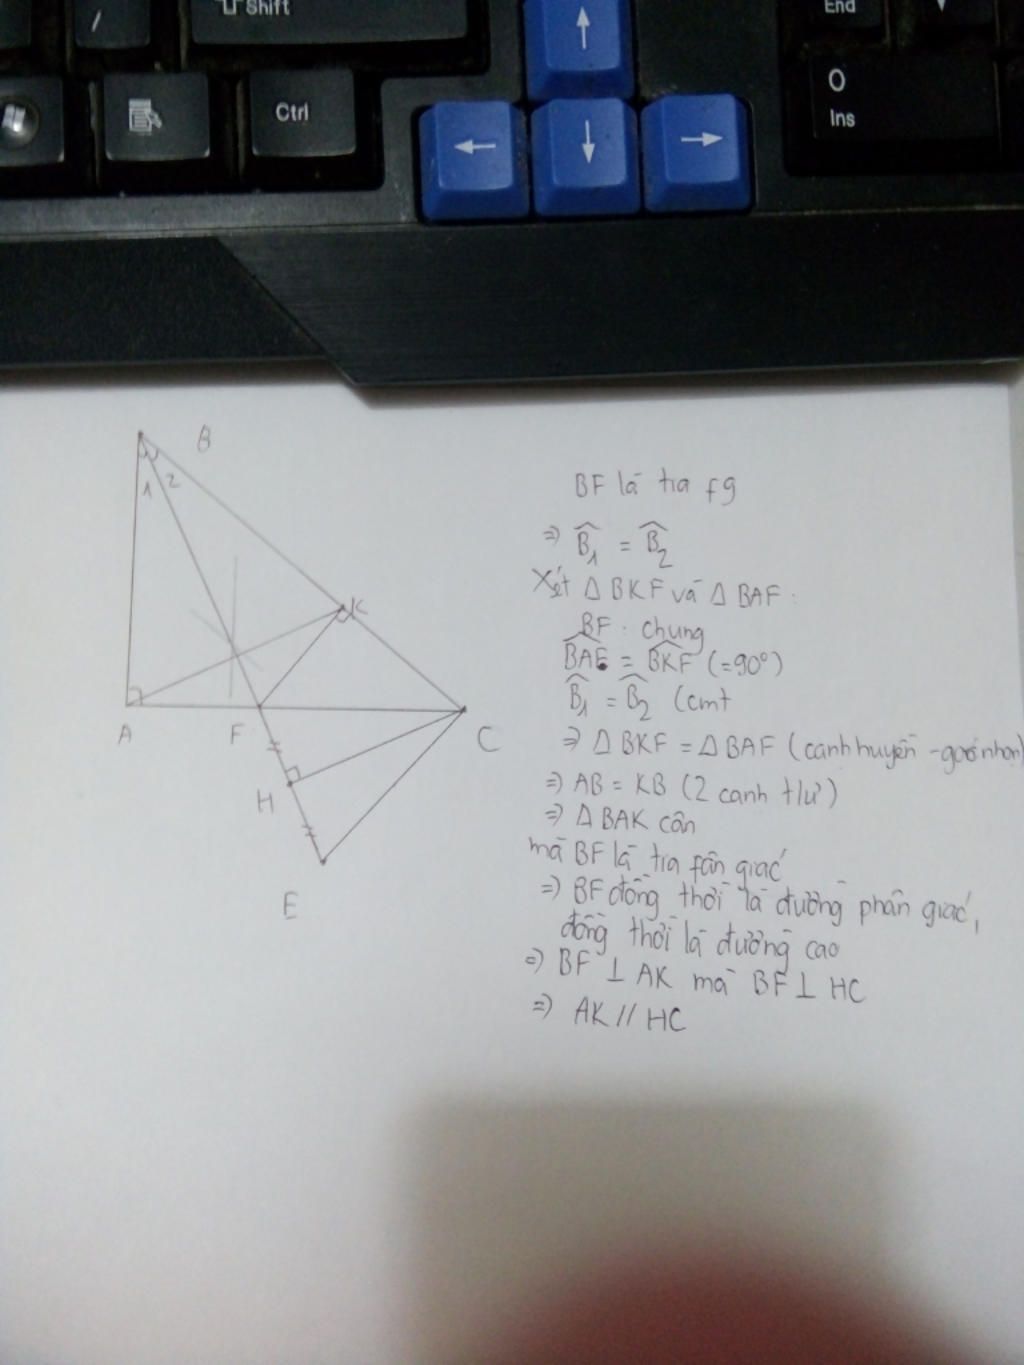 /
Shift
End
Ctrl
0
Ins
B
1 2
K
A
F
C
H
E
BF là tia fg
=> B̂₁ = B̂₂
Xét Δ BKF và Δ BAF :
BF : chung
BAF = BKF (=90°)
B̂₁ = B̂₂ (cmt
=> Δ BKF = Δ BAF (cạnh huyền - góc nhọn)
=> AB = KB (2 cạnh t/ư)
=> Δ BAK cân
mà BF là tia fân giác
=> BF đồng thời là đường phân giác,
đồng thời là đường cao
=> BF ⊥ AK mà BF ⊥ HC
=> AK // HC